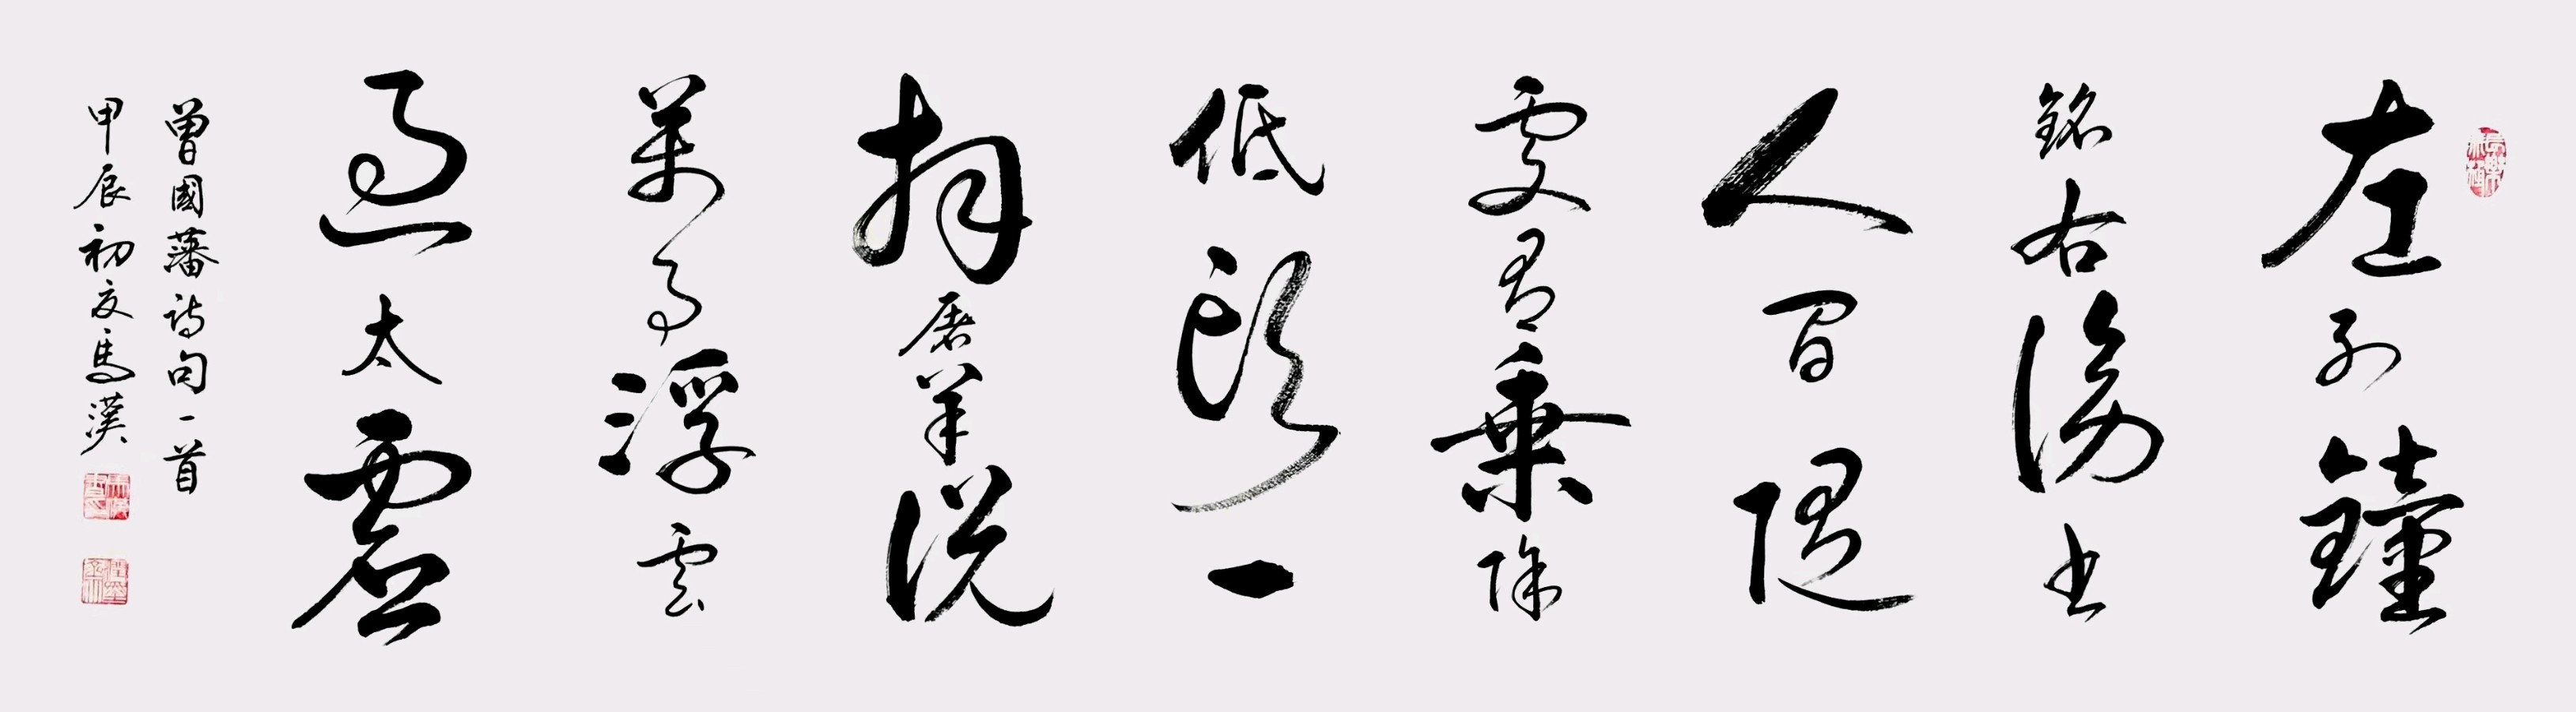 左列鐘
銘右謗書
人間隨
處有乘除
低頭一
拜屠羊説
萬事浮雲
過太虛
曾國藩詩句一首
甲辰初夏馬漢